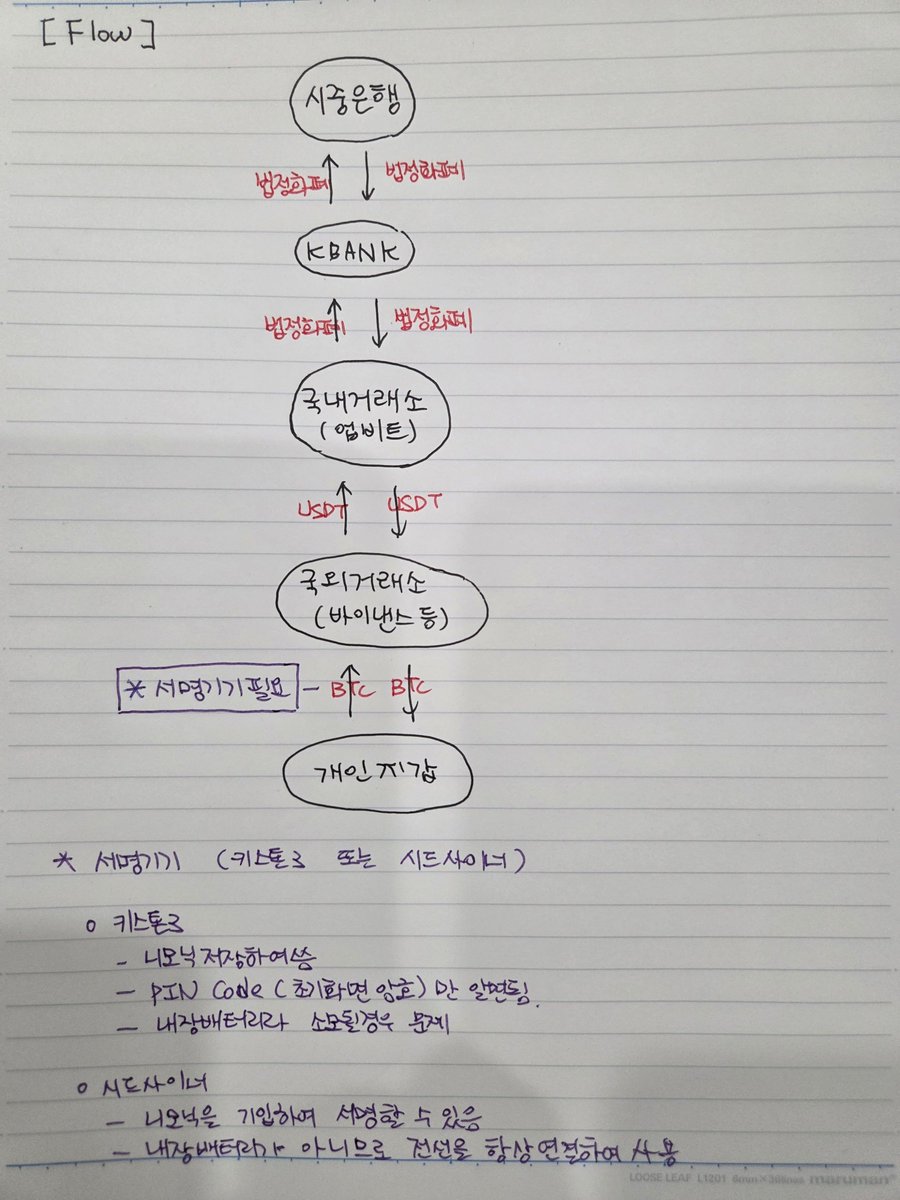 [Flow]
시중은행
법정화폐 법정화폐
KBANK
법정화폐 법정화폐
국내거래소
(업비트)
USDT USDT
국외거래소
(바이낸스 등)
* 서명기기 필요 - BTC BTC
개인지갑
* 서명기기 (키스톤3 또는 시드사이너)
o 키스톤3
- 니모닉 저장하여씀
- PIN Code (초기화면 암호) 만 알면됨.
- 내장배터리라 소모될경우 문제
o 시드사이너
- 니모닉을 기입하여 서명할 수 있음
- 내장배터리가 아니므로 전선을 항상 연결하여 사용
LOOSE LEAF L1201 6mm×36lines maruman